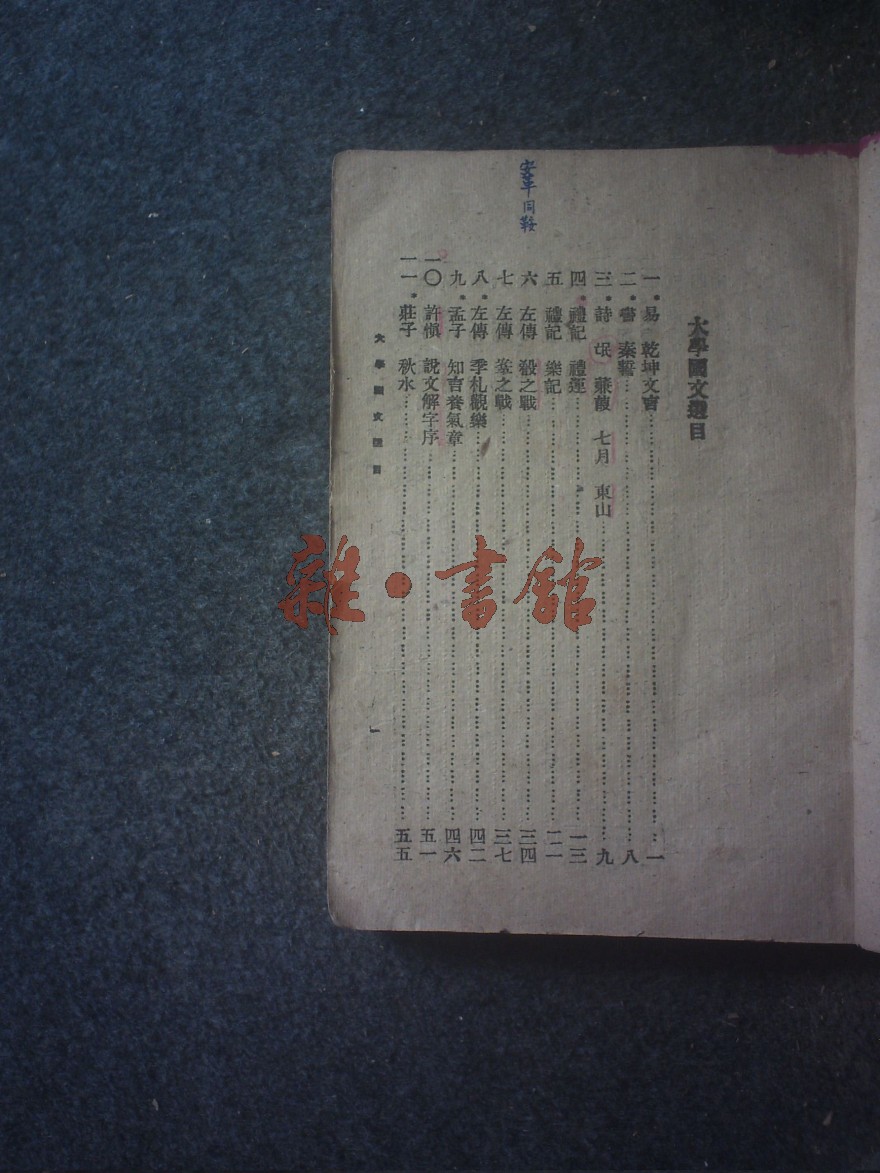 大學國文選目
一 易 乾坤文言 一
二 書 秦誓 八
三 詩 氓 蒹葭 七月 東山 九
四 禮記 禮運 一三
五 禮記 樂記 二二
六 左傳 殽之戰 三四
七 左傳 鞌之戰 三七
八 左傳 季札觀樂 四二
九 孟子 知言養氣章 四六
一〇 許愼 說文解字序 五一
一一 莊子 秋水 五五
大學國文選目
一
同鞍
雜·書館